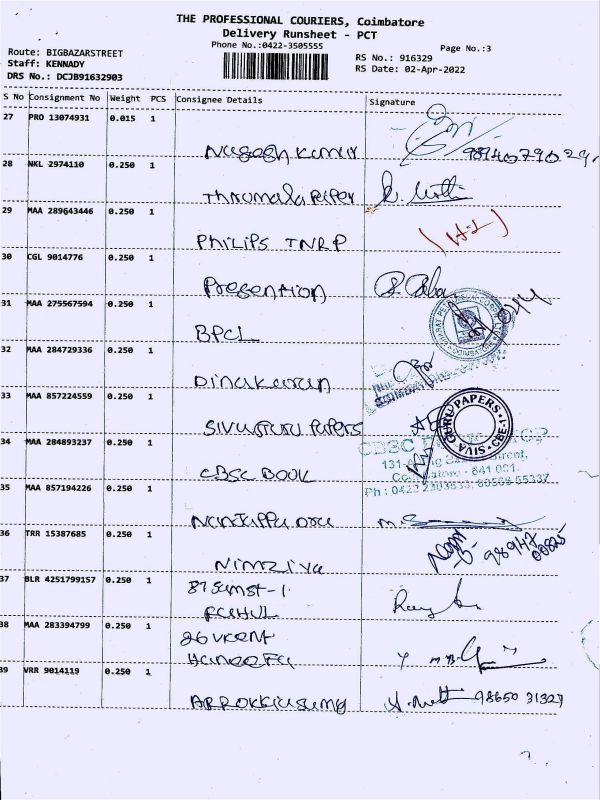 THE PROFESSIONAL COURIERS, Coimbatore
Delivery Runsheet - PCT
Phone No.:0422-3505555
Page No.:3
Route: BIGBAZARSTREET
Staff: KENNADY
DRS No.: DCJB91632903
RS No.: 916329
RS Date: 02-Apr-2022
S No Consignment No Weight PCS Consignee Details Signature
27 PRO 13074931 0.015 1
Nagesh Kumar
28 NKL 2974110 0.250 1
Thirumala Paper
29 MAA 289643446 0.250 1
PHILIPS TNRP
30 CGL 9014776 0.250 1
Presention
31 MAA 275567594 0.250 1
BPCL
32 MAA 284729336 0.250 1
Dinakaran
33 MAA 857224559 0.250 1
SIVAGURU PAPERS
SIVA GURU PAPERS CBE-1
34 MAA 284893237 0.250 1
CBSC BOOK
CBSC
131-
Street,
641 001.
Ph : 0422
35 MAA 857194226 0.250 1
36 TRR 15387685 0.250 1
98947
00825
37 BLR 4251799157 0.250 1
38 MAA 283394799 0.250 1
26 VKENT
Haneefa
39 VRR 9014119 0.250 1
98650 31327